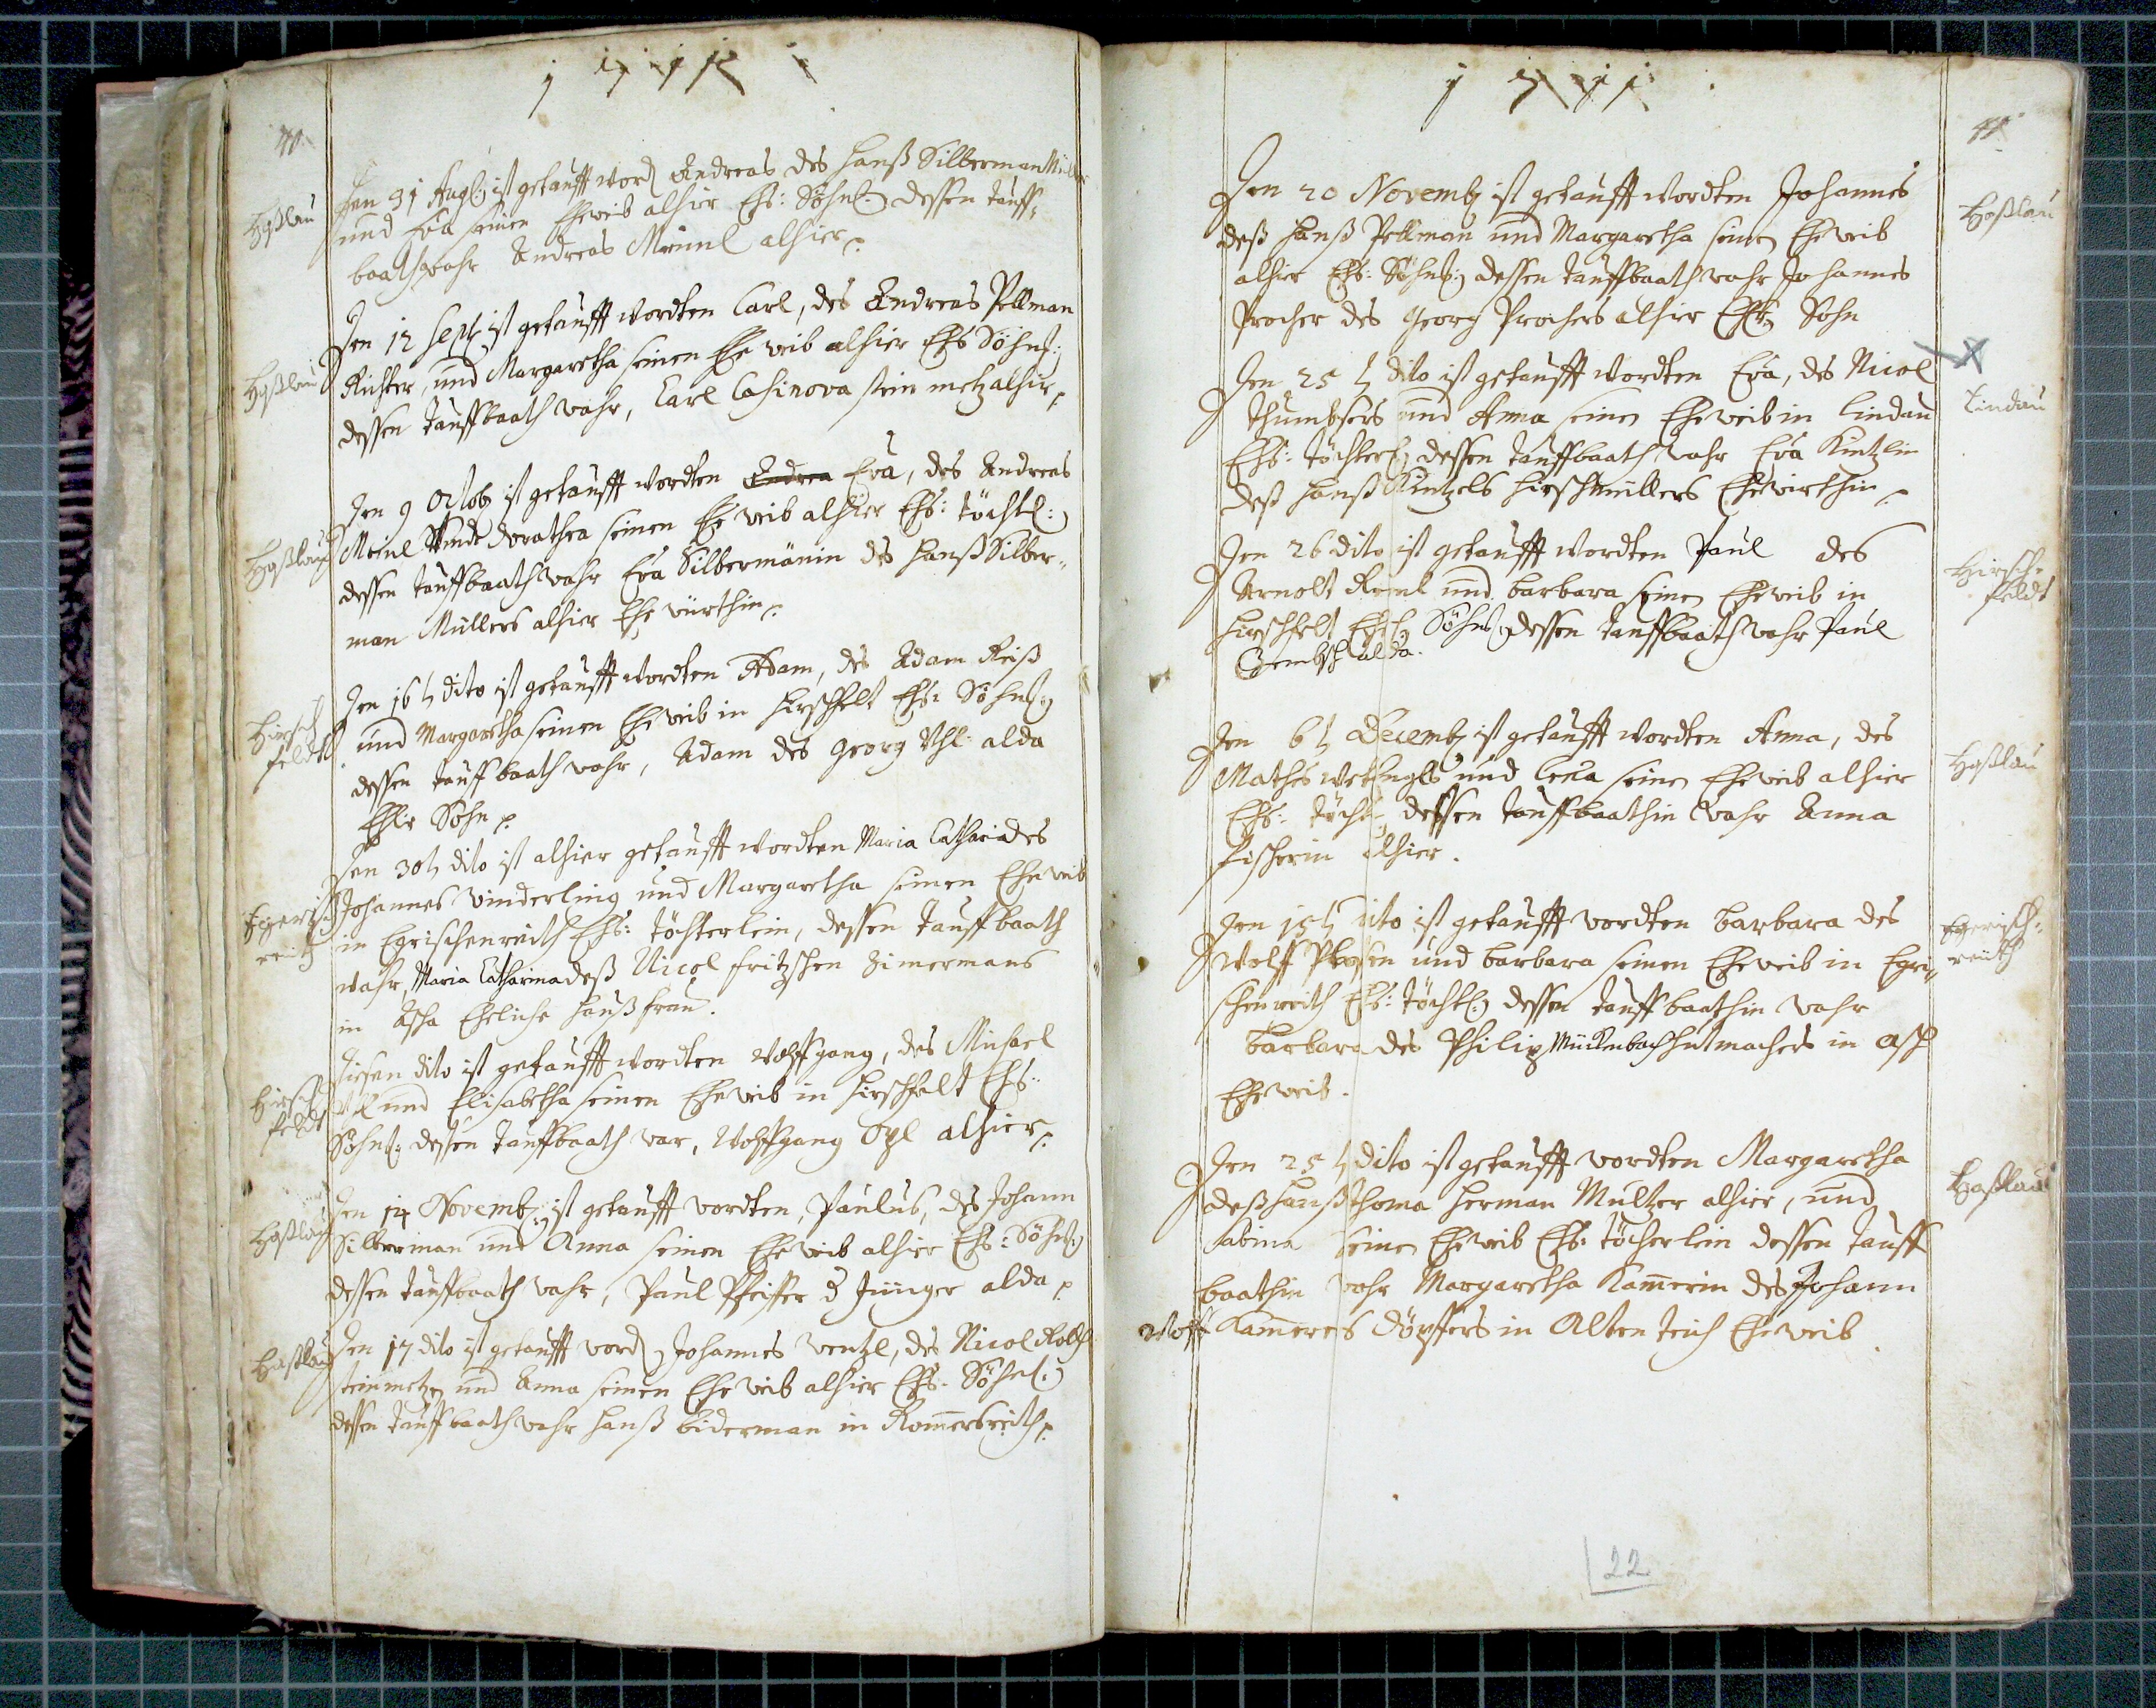 1711
40.
Haßlau
Den 31 Aug: ist getaufft word Andreas des Hanß Silberman
und Eva seinen Eheweib alhier Ehl: Söhnl: dessen tauff-
baath wahr Andreas Meinel alhier
Haßlau
Den 12 Sept ist getaufft wordten Carl, des Andreas Pellman
Richter, und Margaretha seinen Ehe weib alhier Ehl Söhnl:
dessen tauffbaath wahr, Carl Casinova stein metz alhier
Haßlau
Den 9 Octob ist getaufft wordten Andrea Eva, des Andreas
Meinl dorathea seinen Ehe weib alhier Ehl: töchtl:
dessen tauffbaath wahr Eva Silbermänin des Hanß Silber-
man Müllers alhier Ehe würthin
Hirsch
feldt
Den 16 dito ist getaufft wordten Adam, des Adam Reiß
und Margaretha seinen Eheweib in Hirschfelt Ehl: Söhnl:
dessen tauff baath wahr, Adam des Georg Uhl: alda
Ehlr Sohn
Egerisch
reuth
Den 30 dito ist alhier getaufft wordten Maria Catharia des
Johannes Vinderling und Margaretha seinen Eheweib
in Egrischenreith Ehl: töchterlein, dessen tauff baath
wahr, Maria Catharina deß Nicol fritzschen Zimermans
in Ascha Eheliche Haußfrau.
Hirsch
feldt
Diesen dito ist getaufft wordten Wolffgang, des Michael
Uhl und Elisabetha seinen Eheweib in Hirschfelt Ehl:
Söhnl: dessen tauffbaath war, Wolffgang alhier
Haßlau
Den 14 Novemb: ist getaufft wordten, Paulus, des Johann
Silberman und Anna seinen Ehe weib alhier Ehl: Söhnl:
dessen tauffbaath wahr, Paul Pfeiffer d Jünger alda
Haßlau
Den 17 dito ist getaufft word Johannes Wentzl, des Nicol
steinmetzen und Anna seinen Ehe weib alhier Ehl: Söhnl:
dessen tauff baath wahr Hanß biderman in Romersreith
1711
41.
Haßlau
Den 20 Novemb ist getaufft wordten Johannes
deß Hanß Pellman und Margaretha seinen Eheweib
alhier Ehl: Söhnl: dessen tauffbaath wahr Johannes
Procher des Georg Prochers alhier Sohn
Lindau
Den 25 dito ist getaufft wordten Eva, des Nicol
thumbsers und Anna seinen Eheweib in Lindau
Ehl: töchterl dessen tauffbaath wahr Eva Küntzlin
deß Hanß Küntzels Hirschmüllers Ehewirthin
Hirsch-
feldt
Den 26 dito ist getaufft wordten Paul des
Arnolt und barbara seinen Eheweib in
Hirschfelt Söhnl: dessen tauffbaath wahr Paul
alda.
Haßlau
Den 6 Decemb ist getaufft wordten Anna, des
Mathes und Lena seinen Eheweib alhier
Ehl: töchtl dessen tauffbaathin wahr Anna
fischerin alhier.
Egerisch:
reuth
Den 15 dito ist getaufft wordten barbara des
Wolff und barbara seinen Eheweib in Egri-
schenreith Ehl: töchtl: dessen tauff baathin wahr
barbara des Philip Mückenbach Hutmachers in Asch
Eheweib.
Haßlau
Den 25 dito ist getaufft wordten Margaretha
deß Hanß thoma Herman Multzer alhier, und
Sabina seinen Eheweib Ehl: töcherlein dessen tauff
baathin wahr Margaretha Kamerin des Johann
Wolff Kameres döpffers in Alten teich Eheweib
22